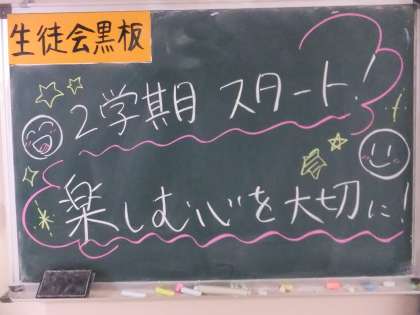 生徒会黒板
2学期 スタート!
楽しむ心を大切に!